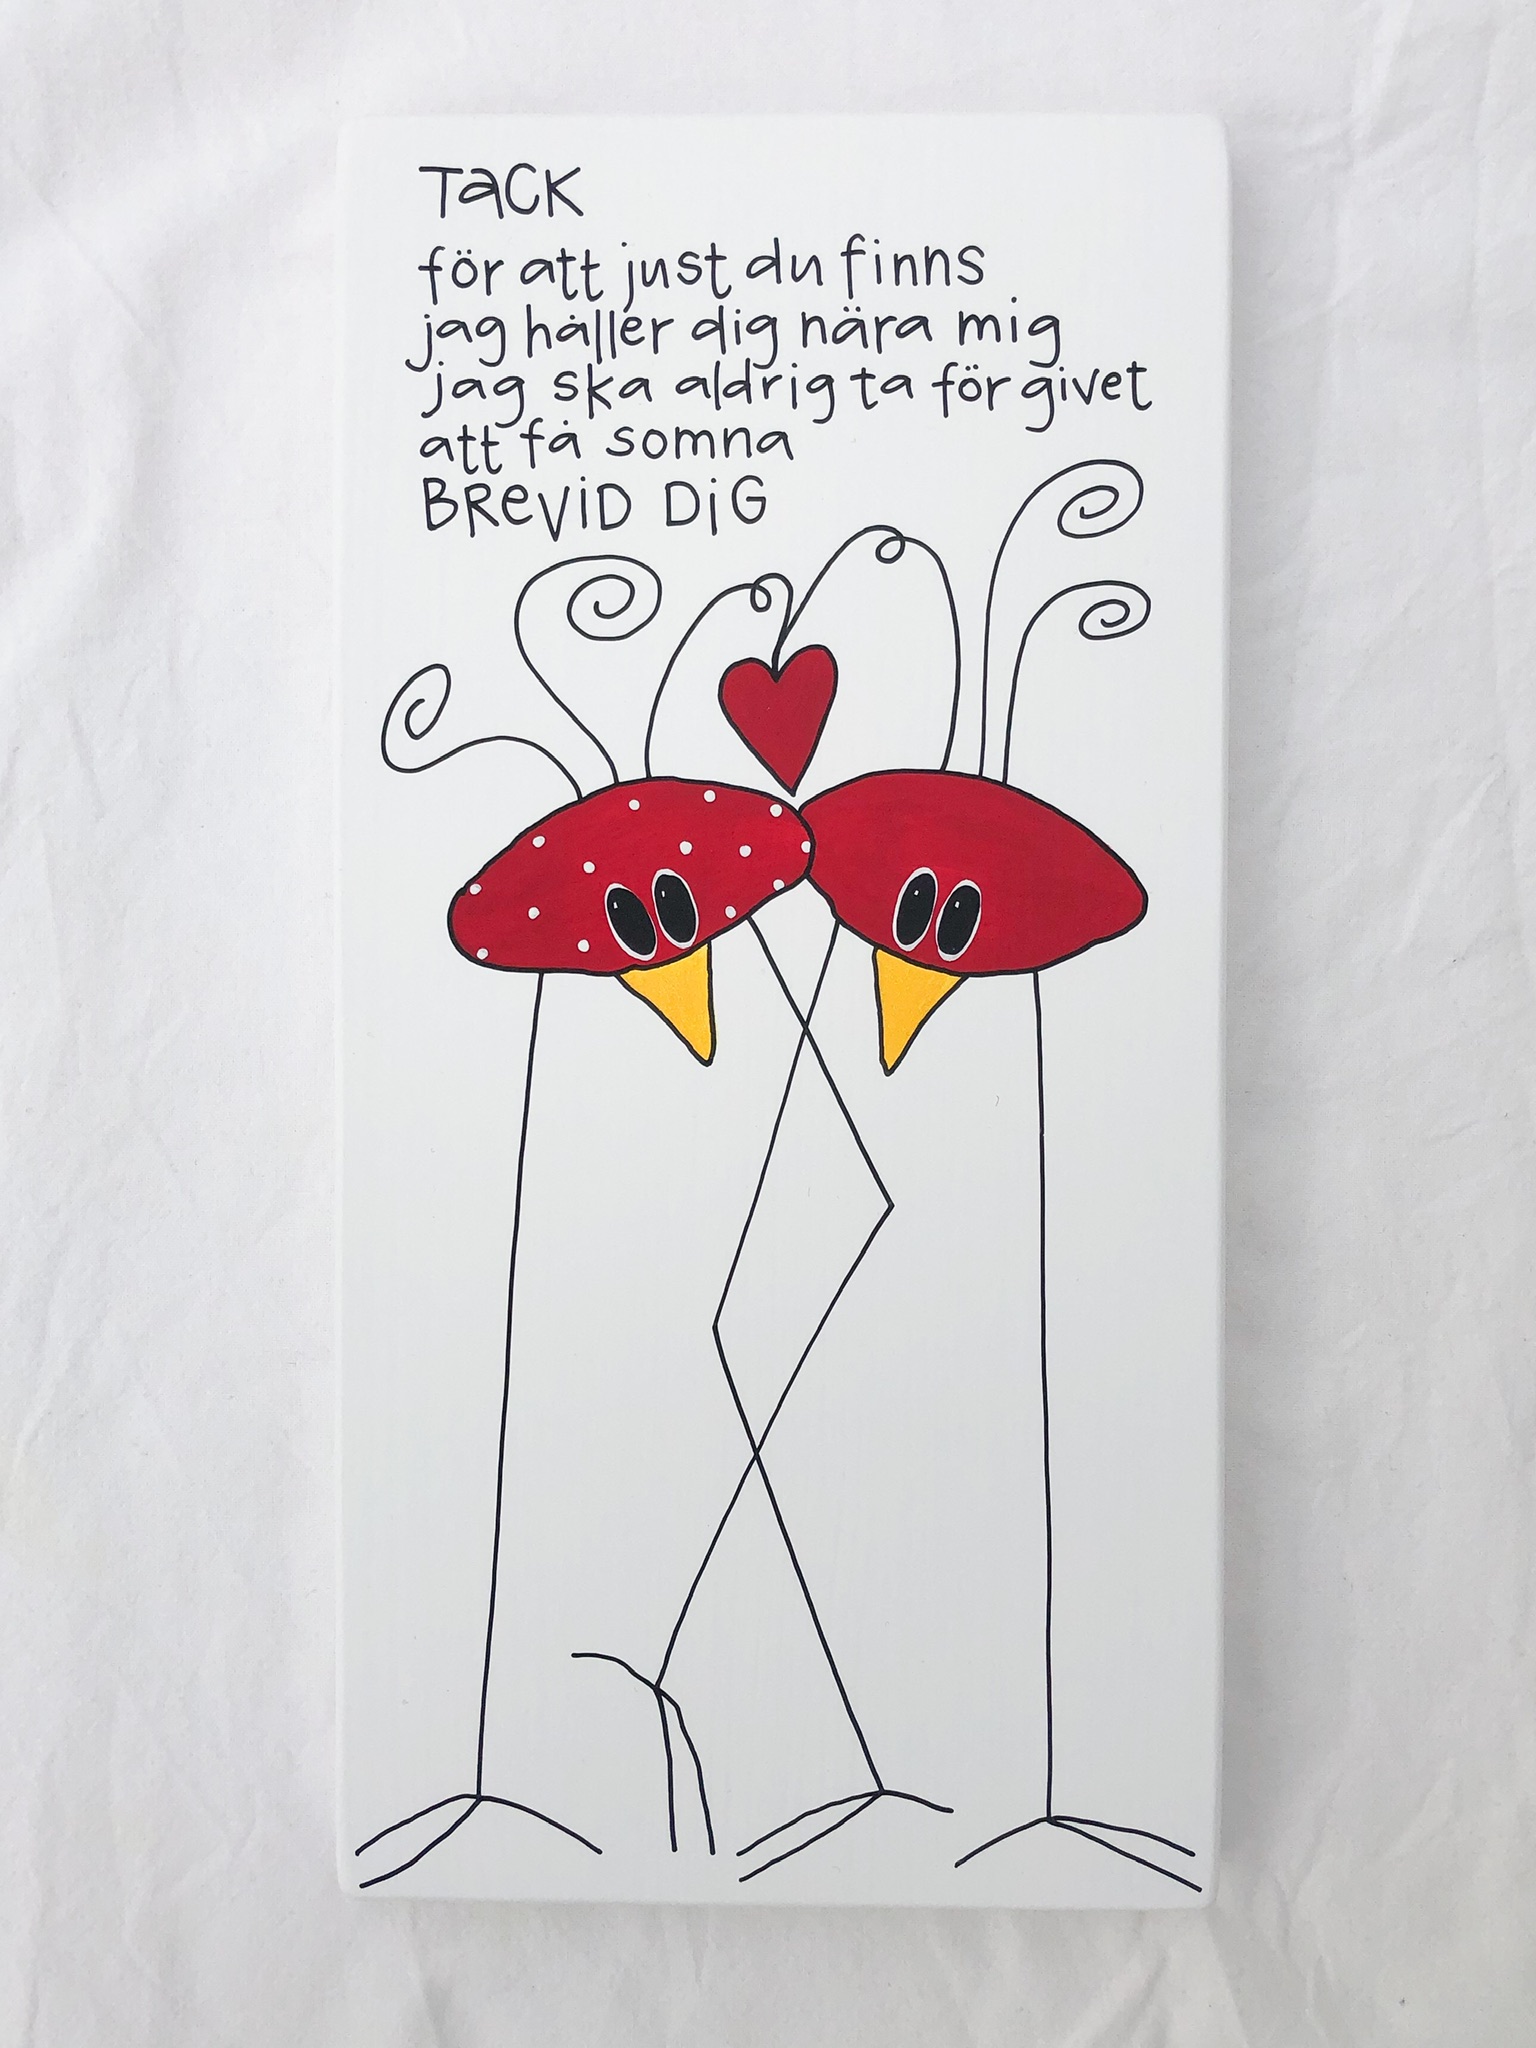 TaCK
för att just du finns
jag håller dig nära mig
jag ska aldrig ta för givet
att få somna
BReViD DiG